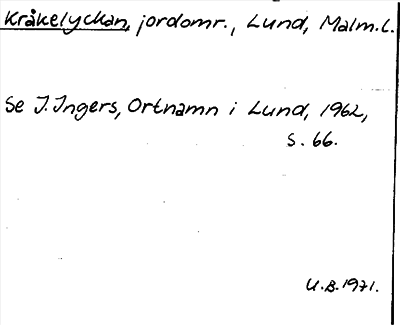 Kråkelyckan, jordomr., Lund, Malm.l.
Se J. Ingers, Ortnamn i Lund, 1962,
s. 66.
U.B. 1971.